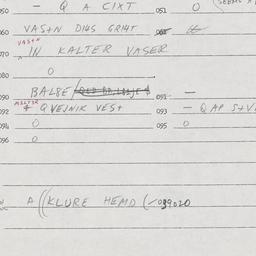 050 — Q A CIXT 051 0 (SEEMS
060 VAS+N DI4S GRI4T
VAS+N
070 IN KALTER VASER
080 0
090 BAL8E/ 091 —
MELTER
092 + Q VEJNIK VES+ 093 — Q AP S+V
094 0 095 0
096 0
A ((KLURE HEMD (✓ 039020